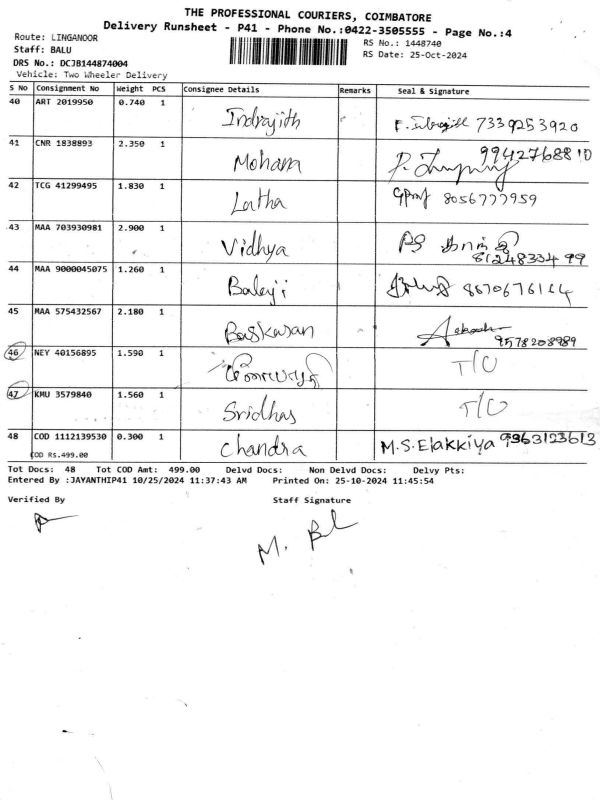 THE PROFESSIONAL COURIERS, COIMBATORE
Delivery Runsheet - P41 - Phone No.:0422-3505555 - Page No.:4
Route: LINGANOOR
RS No.: 1448740
Staff: BALU
RS Date: 25-Oct-2024
DRS No.: DCJB144874004
Vehicle: Two Wheeler Delivery
S No Consignment No Weight PCS Consignee Details Remarks Seal & Signature
40 ART 2019950 0.740 1 Indrajith 7339253920
41 CNR 1838893 2.350 1 Mohana 9942768810
42 TCG 41299495 1.830 1 Latha 8056777959
43 MAA 703930981 2.900 1 Vidhya 8124833499
44 MAA 9000045075 1.260 1 Balaji
45 MAA 575432567 2.180 1 Baskaran 9578208989
46 NEY 40156895 1.590 1 T/O
47 KMU 3579840 1.560 1 Sridhas T/O
48 COD 1112139530 0.300 1 Chandra M.S.Elakkiya 9363123613
COD RS.499.00
Tot Docs: 48 Tot COD Amt: 499.00 Delvd Docs: Non Delvd Docs: Delvy Pts:
Entered By :JAYANTHIP41 10/25/2024 11:37:43 AM Printed On: 25-10-2024 11:45:54
Verified By Staff Signature
M.